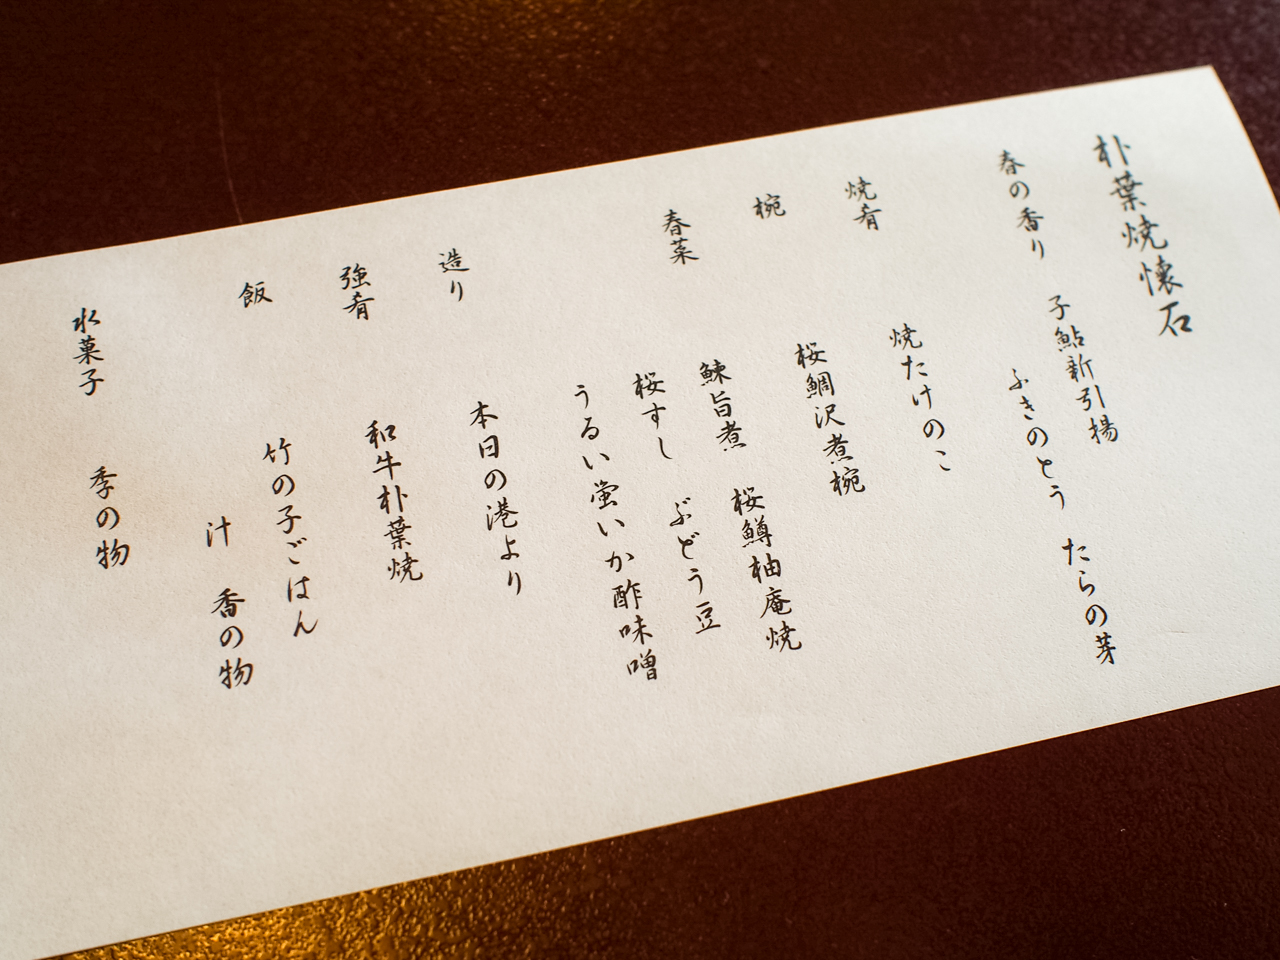 朴葉焼懐石
春の香り 子鮎新引揚
ふきのとう たらの芽
焼肴 焼たけのこ
椀 桜鯛沢煮椀
春菜 鰊旨煮 桜鱒柚庵焼
桜すし ぶどう豆
うるい蛍いか酢味噌
造り 本日の港より
強肴 和牛朴葉焼
飯 竹の子ごはん
汁 香の物
水菓子 季の物